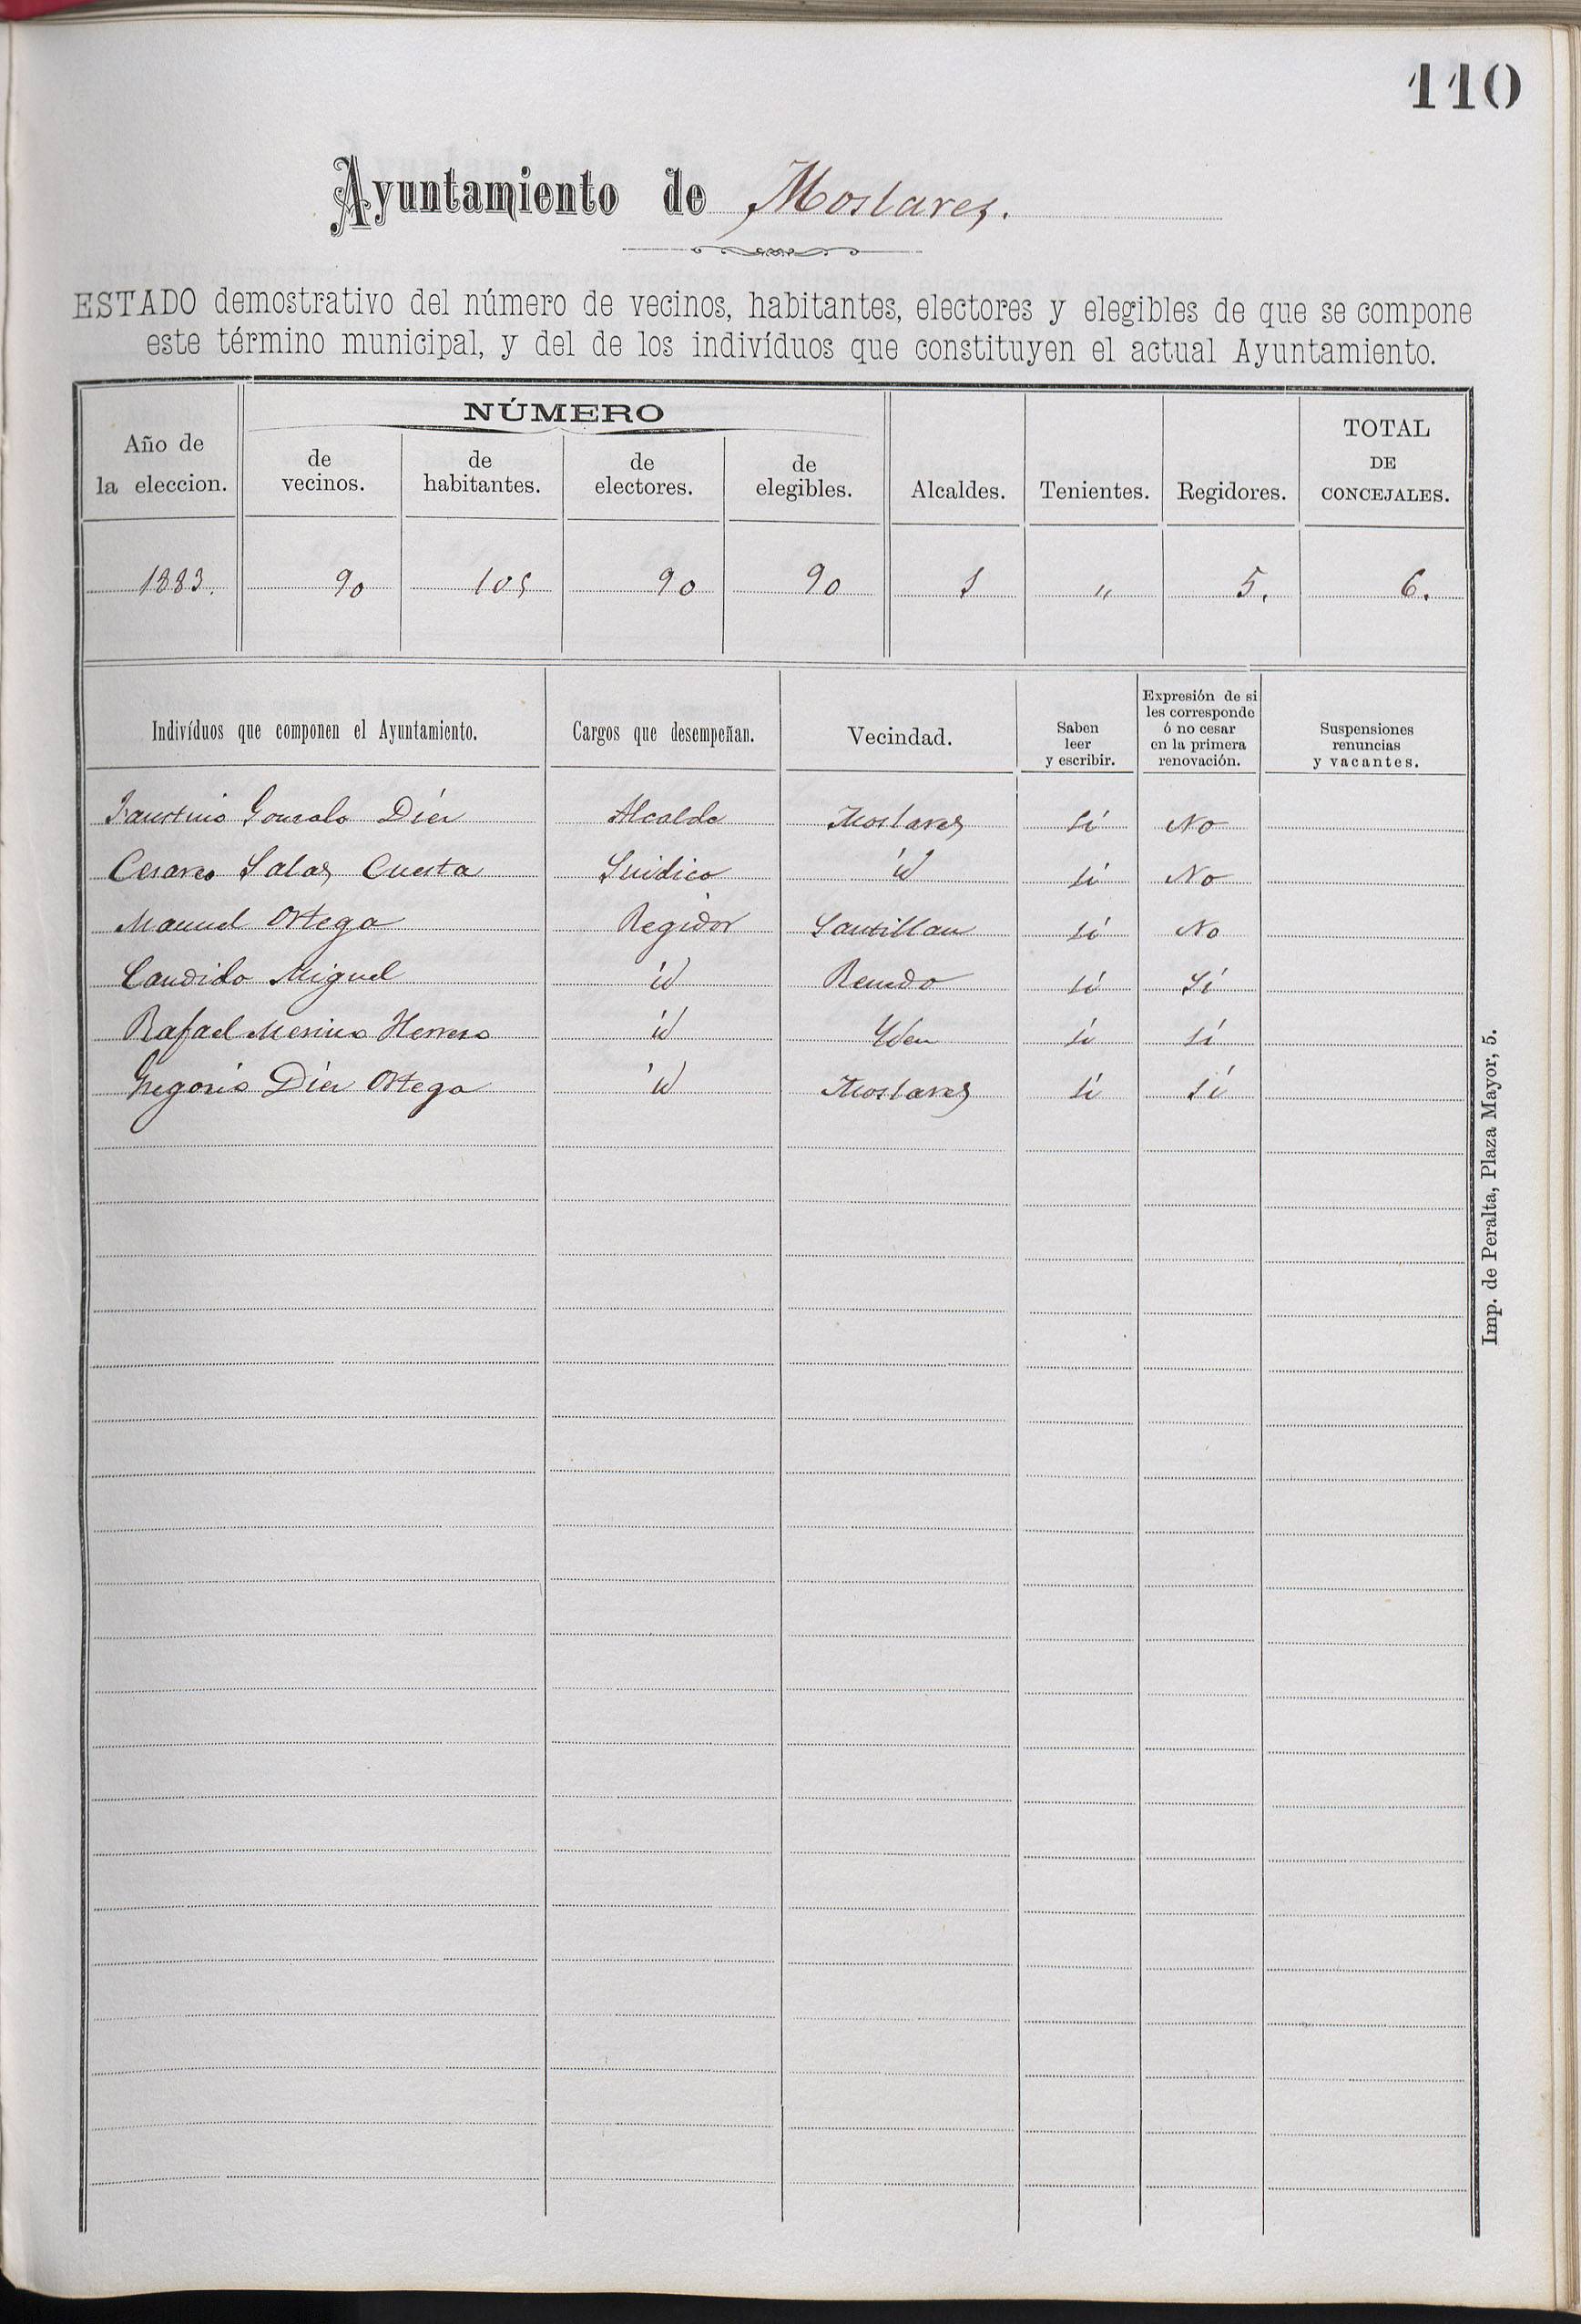 110
Ayuntamiento de Moslares.
ESTADO demostrativo del número de vecinos, habitantes, electores y elegibles de que se compone
este término municipal, y del de los indivíduos que constituyen el actual Ayuntamiento.
Año de la eleccion. NÚMERO de vecinos. de habitantes. de electores. de elegibles. Alcaldes. Tenientes. Regidores. TOTAL DE CONCEJALES.
1883. 90 105 90 90 1 " 5. 6.
Indivíduos que componen el Ayuntamiento. Cargos que desempeñan. Vecindad. Saben leer y escribir. Expresión de si les corresponde ó no cesar en la primera renovación. Suspensiones renuncias y vacantes.
Faustino Gonzalo Diez Alcalde Moslares Si No
Cesareo Salas Cuesta Sindico id Si No
Manuel Ortega Regidor Santillan Si No
Candido Miguel id Renedo Si Si
Rafael Merino Herrero id Yden Si Si
Gregorio Diez Ortega id Moslares Si Si
Imp. de Peralta, Plaza Mayor, 5.